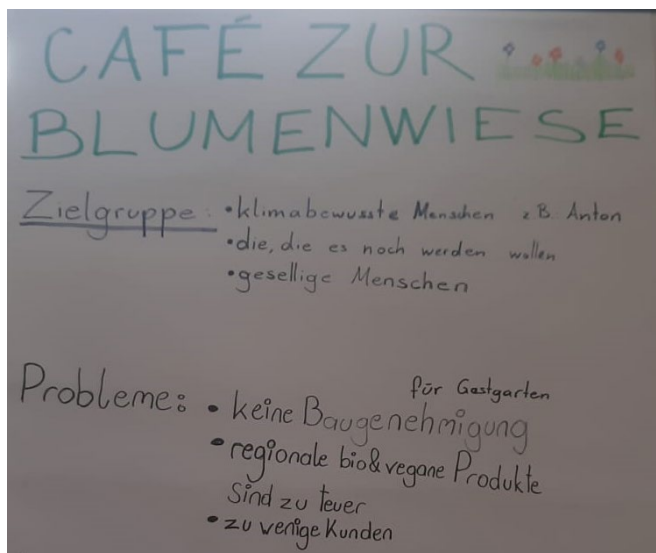 CAFÉ ZUR
BLUMENWIESE
Zielgruppe: • klimabewusste Menschen z.B. Anton
• die, die es noch werden wollen
• gesellige Menschen
für Gastgarten
Probleme: • keine Baugenehmigung
• regionale bio&vegane Produkte
sind zu teuer
• zu wenige Kunden